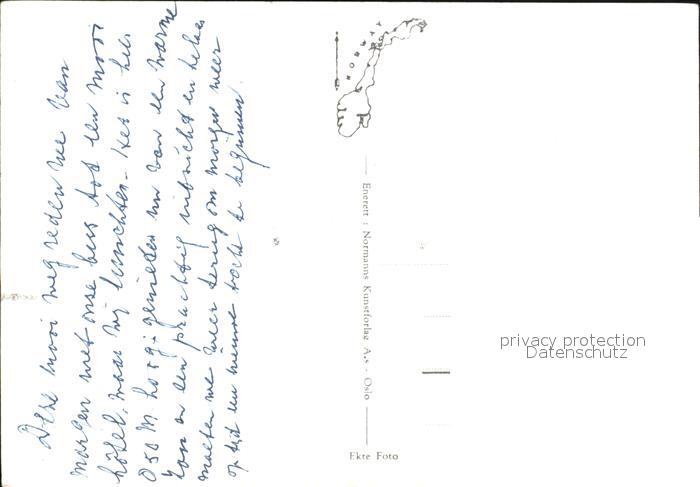 Deze mooi weg reden we van
morgen met onse bus tot een mooi
hotel, waar wij lunchten. Het is hier
050 M hoog. genieten nu van een warme
zon en een prachtig uitzicht en
moeten we weer terug om morgen weer
op tijd een nieuwe tocht te beginnen.
NORWAY
Enerett: Normanns Kunstforlag A.s - Oslo
Ekte Foto
privacy protection
Datenschutz